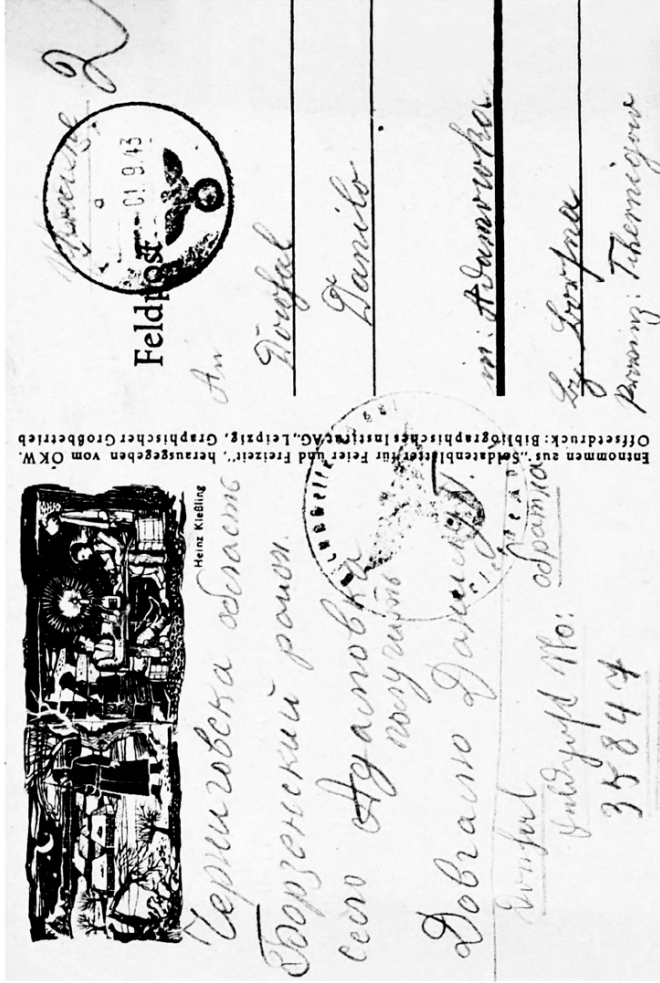 Feldpost
01.9.43
An
Dowgal
Danilo
in: Adamowka
Bz. Borsna
Provinz: Tschernigow
Entnommen aus „Soldatenblätter für Feier und Freizeit", herausgegeben vom OKW.
Offsetdruck: Bibliographisches Institut AG., Leipzig, Graphischer Großbetrieb
Heinz Kießling
Черниговска область
Борзенский район.
село Адамовка
получить
Довгалю Данилу Г.
обратка
Dowgal
Feldpost No:
35847